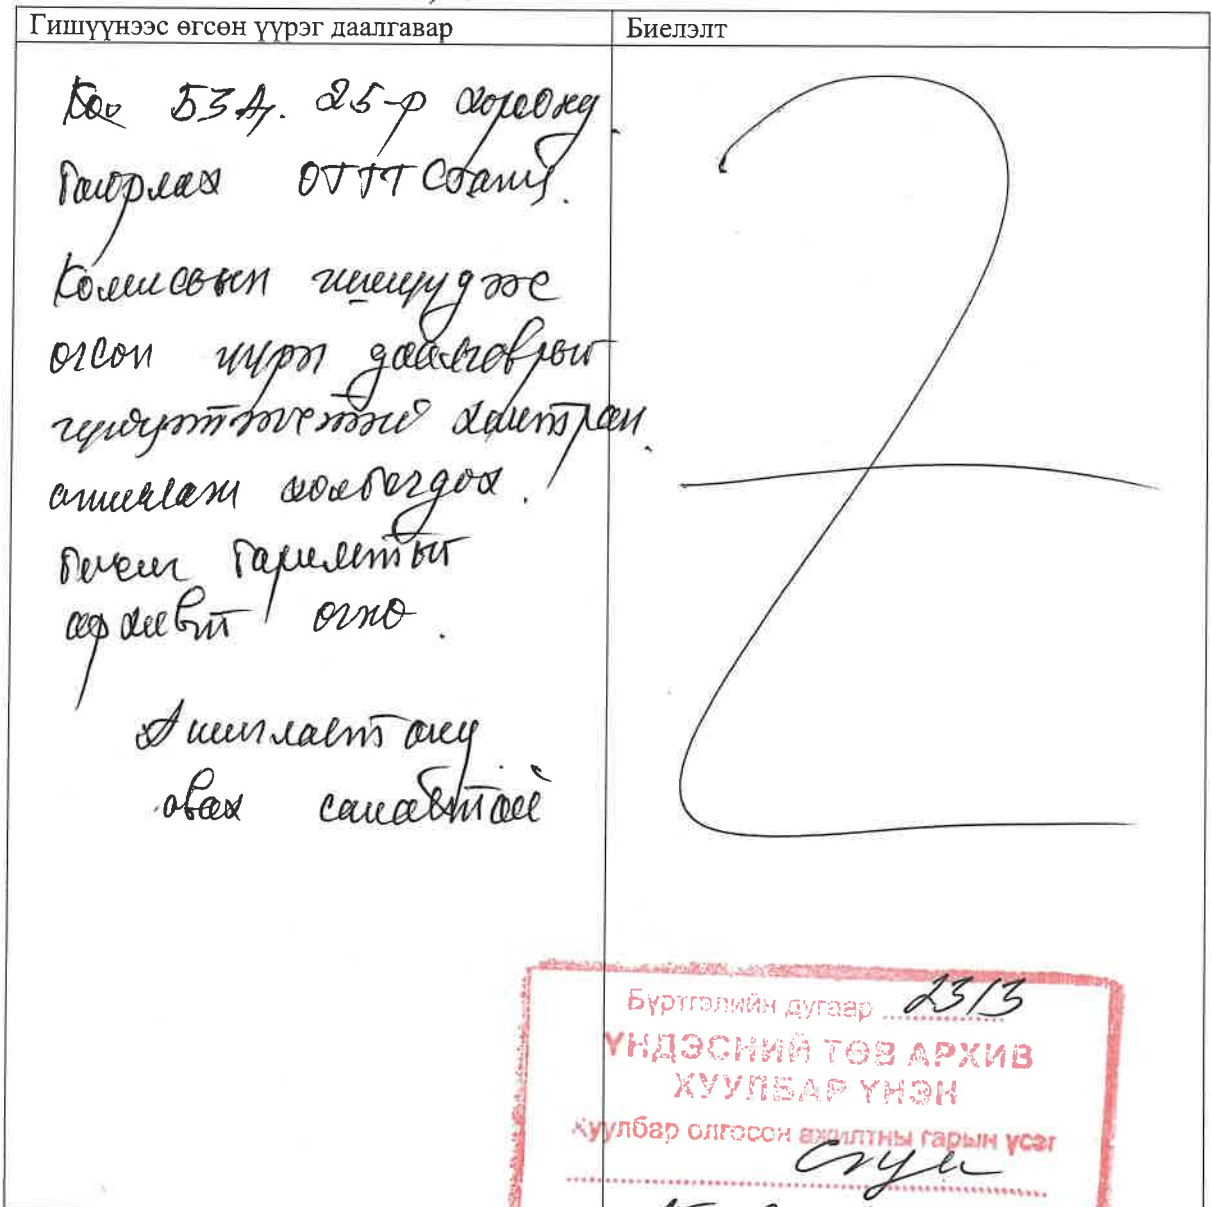 Гишүүнээс өгсөн үүрэг даалгавар
Биелэлт
БЗД. 25-р хороонд
байрлах ОТТТ
Комиссын гишүүдээс
өгсөн үүрэг даалгаврыг
гүйцэтгэгчтэй хамтран
ажиллаж холбогдох
бичиг баримтыг
архивт өгнө.
Ашиглалтанд
авах саналтай
Бүртгэлийн дугаар 2313
ҮНДЭСНИЙ ТӨВ АРХИВ
ХУУЛБАР ҮНЭН
Хуулбар олгосон ажилтны гарын үсэг